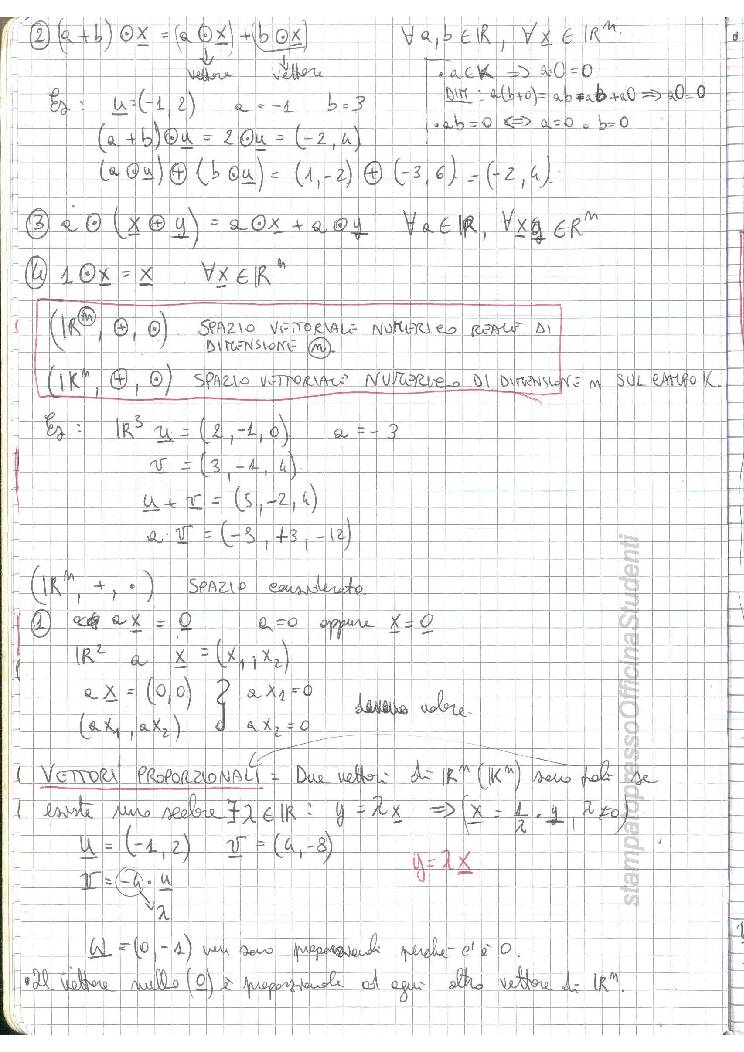 ② (a+b) ⊙ x = (a ⊙ x) + (b ⊙ x) ∀ a, b ∈ ℝ, ∀ x ∈ ℝⁿ.
vettore vettore
• a ∈ K ⇒ a0 = 0
DIM: a(b+0) = ab = ab + a0 ⇒ a0 = 0
• ab = 0 ⇔ a=0 o b=0
Es: u = (-1, 2) a = -1 b = 3
(a+b) ⊙ u = 2 ⊙ u = (-2, 4)
(a ⊙ u) ⊕ (b ⊙ u) = (1, -2) ⊕ (-3, 6) = (-2, 4).
③ a ⊙ (x ⊕ y) = a ⊙ x + a ⊙ y ∀ a ∈ ℝ, ∀ x y ∈ ℝⁿ
④ 1 ⊙ x = x ∀ x ∈ ℝⁿ
(ℝⁿ, ⊕, ⊙) SPAZIO VETTORIALE NUMERICO REALE DI
DIMENSIONE n.
(Kⁿ, ⊕, ⊙) SPAZIO VETTORIALE NUMERICO DI DIMENSIONE n SUL CAMPO K.
Es: ℝ³ u = (2, -1, 0) a = -3
v = (3, -1, 4)
u + v = (5, -2, 4)
a · v = (-9, +3, -12)
(ℝⁿ, +, ·) SPAZIO considerato
① a x = 0 a=0 oppure x = 0
ℝ² a x = (x₁, x₂)
a x = (0, 0) } a x₁ = 0
(ax₁, ax₂) a x₂ = 0
devono valere
VETTORI PROPORZIONALI = Due vettori di ℝⁿ (Kⁿ) sono tali se
esiste uno scalare ∃ λ ∈ ℝ : y = λ x ⇒ (x = 1/λ · y, λ ≠ 0)
u = (-1, 2) v = (4, -8)
y = λ x
v = -4 · u
λ
w = (0, -1) non sono proporzionali perchè c'è 0.
• Il vettore nullo (0) è proporzionale ad ogni altro vettore di ℝⁿ.
stampatopressoOfficinaStudenti